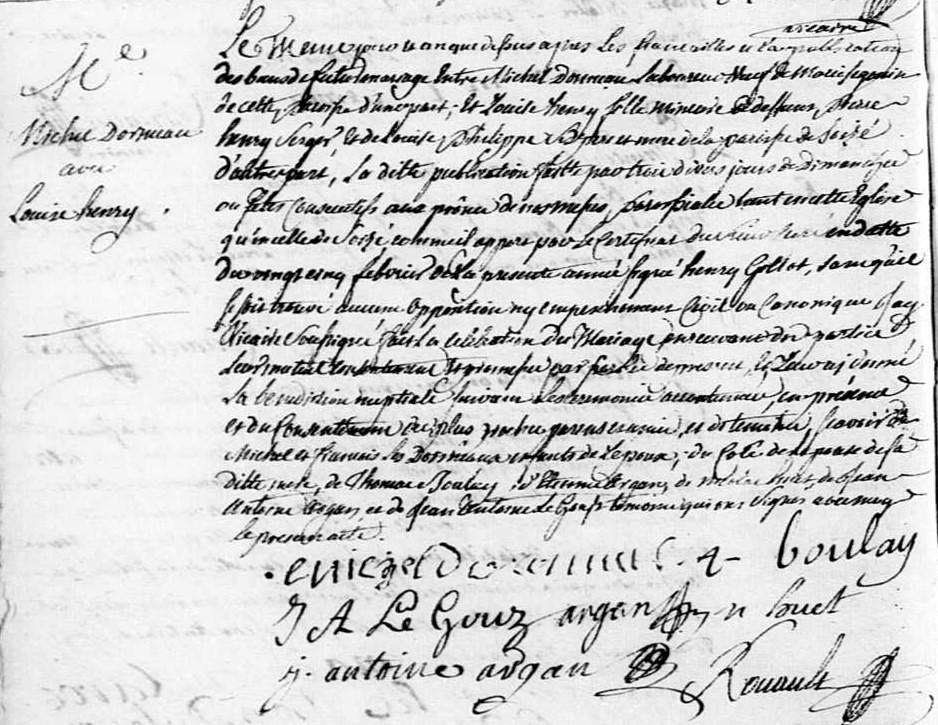 vicaire
M.e
Michel Dormeau
avec
Louise henry.
Le Meme jour vanque dessus apres Les fiancailles et la publication
des bans de futur mariage Entre Michel Dormeau Laboureur Veuf de Marie
de cette paroisse d'une part; Et Louise henry fille Mineure de deffunt pierre
henry Serger et de Louise philippe ses pere et mere de la paroisse de Soizé
d'autre part, La ditte publication faitte par trois divers jours de dimanches
ou fetes Consecutifs aux prônes de nos messes paroissiales tant en cette Eglise
qu'en celle de Soizé comme il appert par le Certificat du Sieur Curé en datte
du vingt cinq febvrier de la presente année signé henry Gollot, sans qu'il
se soit trouvé aucune opposition ny empeschement Civil ou Canonique Je
Vicaire Soussigné fait la celebration du Mariage en recevant des parties
Leur mutuel Consentement par parolle de present, et Leur ai donné
La benediction nuptiale suivant les ceremonies accoutumées, en presence
et du Consentement des plus proches parens et amis, et de temoins, sçavoir de
Michel et francois les Dormeaux enfants de l'epoux; du Coté de l'epouse de sa
ditte mere, de Thomas Boulay, d'Etienne argan, de huet, de Jean
Antoine argan et de Jean Antoine Le Gouz temoins qui ont signés avec nous
le present acte.
michel dormeau t boulay
J A Le Gouz argan n huet
j. antoine argan Rouault